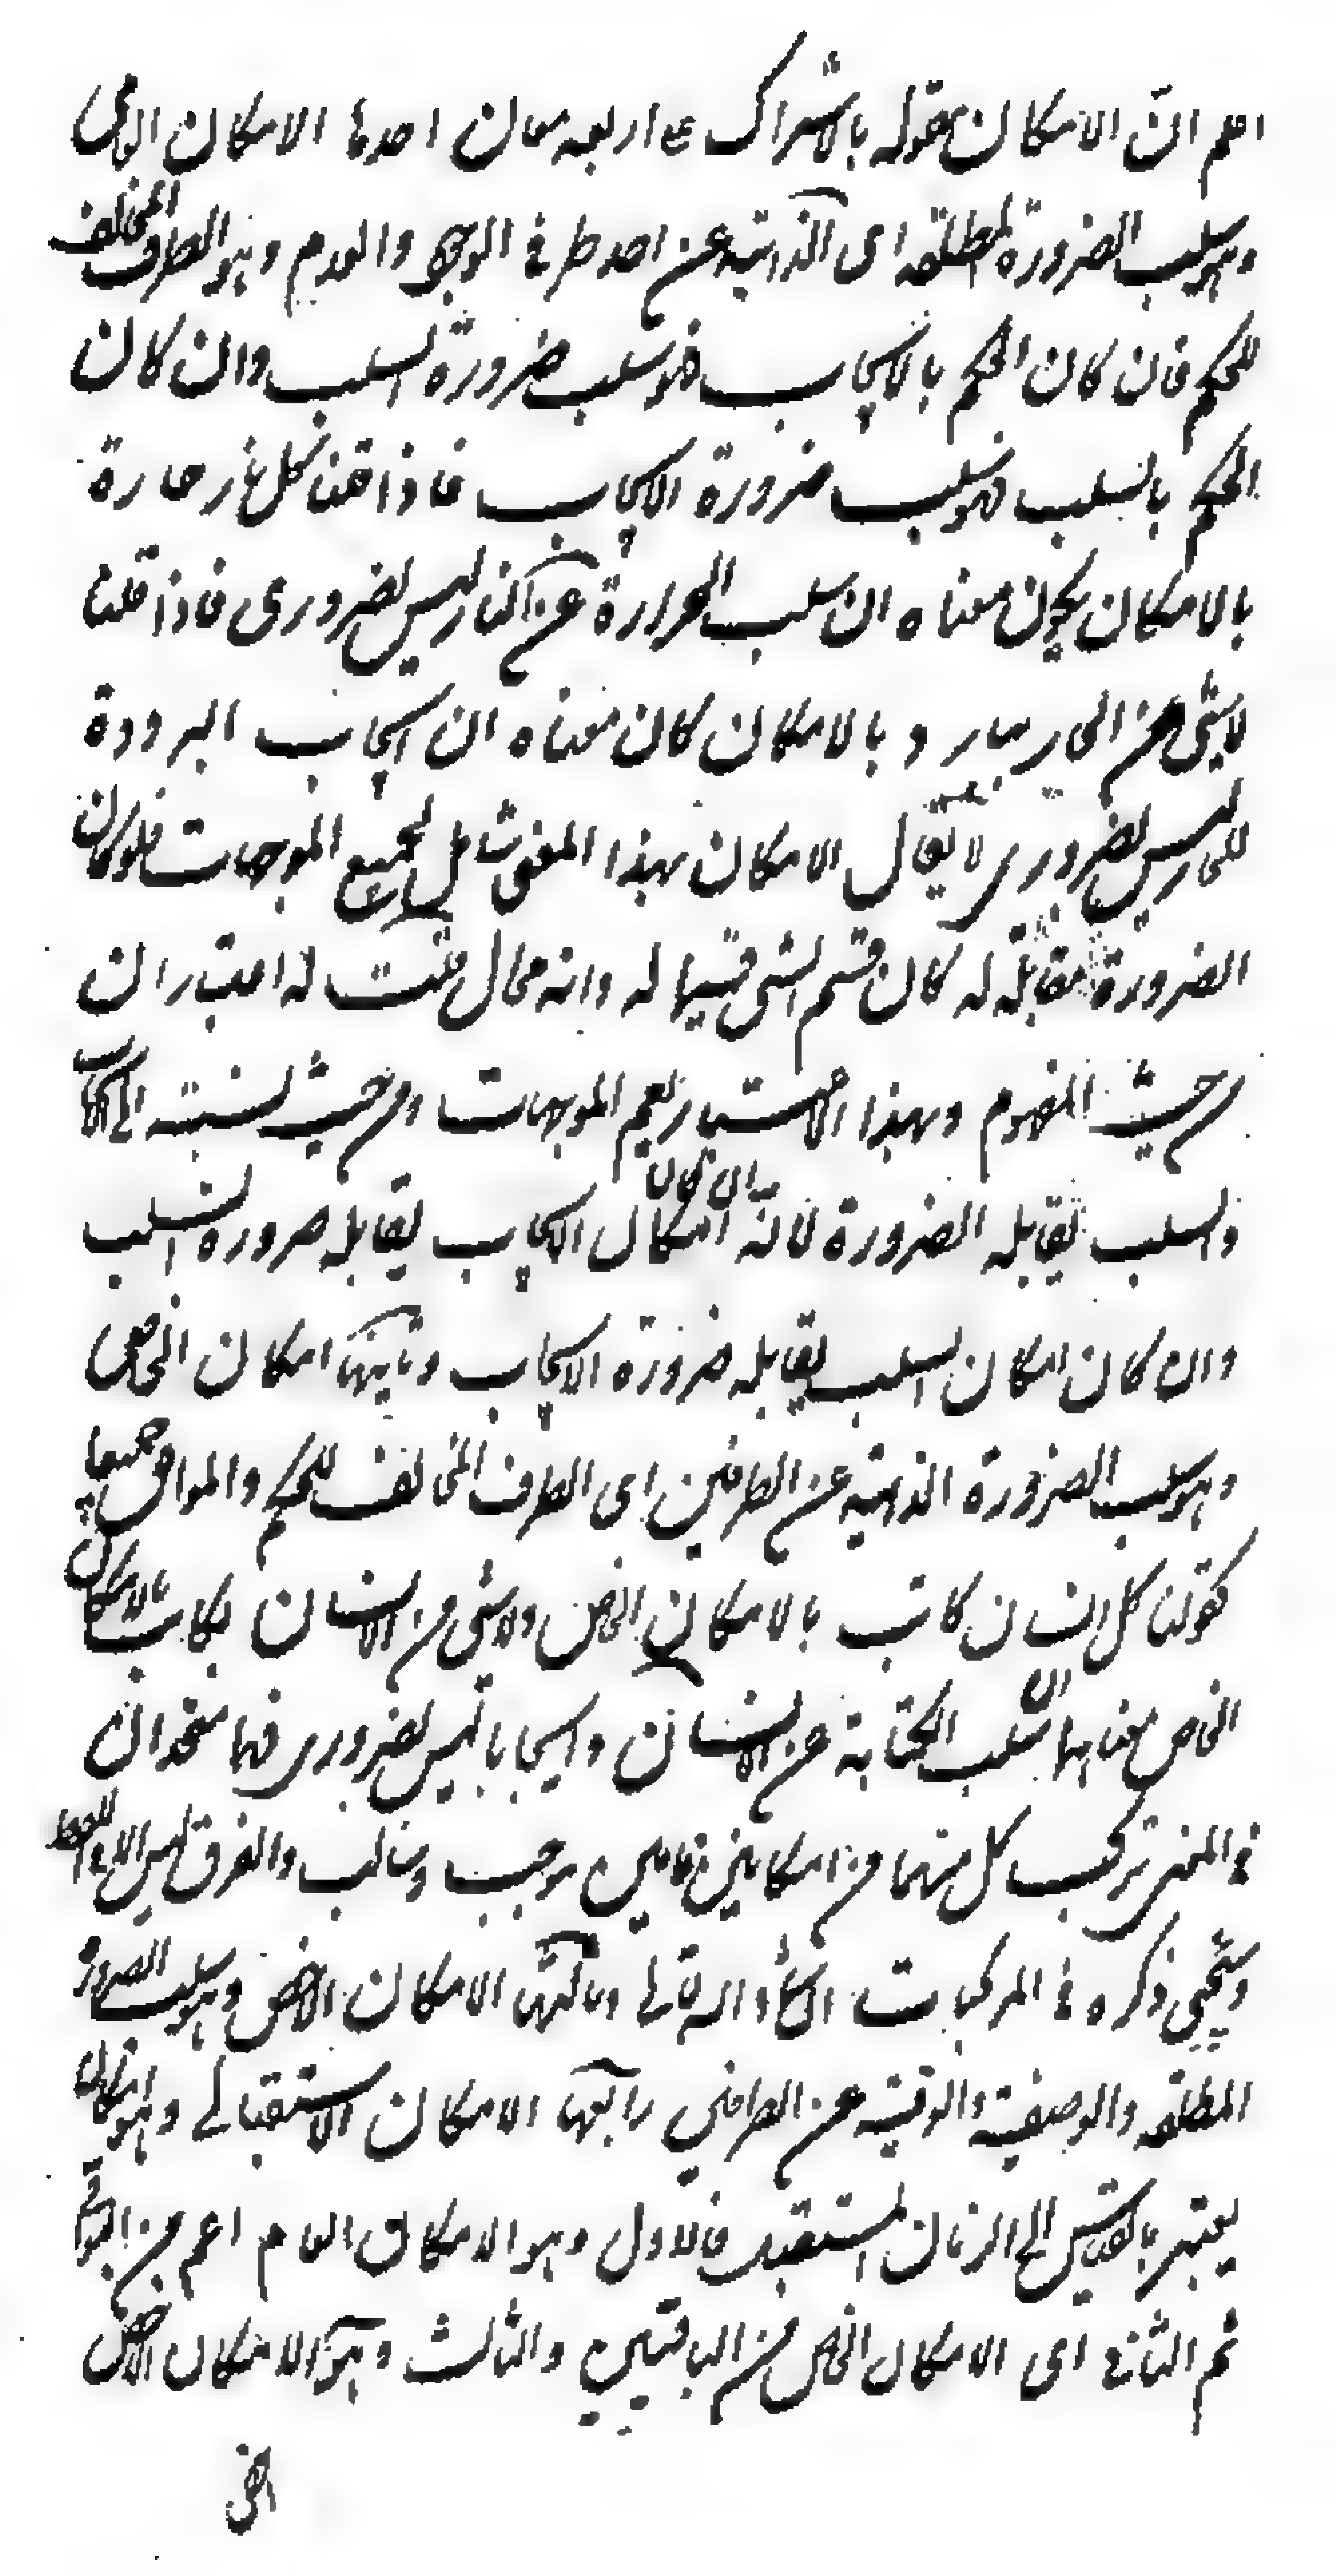 اعلم ان الامكان مقولة بالاشتراك ع اربعة معان احدها الامكان العامى
وهو سلب الضرورة المطلقة اى الذاتية عن احد طرفى الوجود والعدم وهو الطرف المخالف
للحكم فان كان الحكم بالايجاب فهو سلب ضرورة السلب وان كان
الحكم بالسلب فهو سلب ضرورة الايجاب فاذا قلنا كل نار حارة
بالامكان يكون معناه ان سلب الحرارة عن النار ليس بضرورى فاذا قلنا
لا شئ من الحار ببارد بالامكان كان معناه ان ايجاب البرودة
للحار ليس بضرورى لا يقال الامكان بهذا المعنى شامل لجميع الموجهات فلو كان
الضرورة مقابلة له كان قسم الشئ قسيما له وانه محال قلت له اعتباران
من حيث المفهوم وبهذا الاعتبار يعم الموجهات ومن حيث نسبته الى الايجاب
والسلب يقابله الضرورة لانه ان كان امكان الايجاب يقابله ضرورة السلب
وان كان امكان السلب يقابله ضرورة الايجاب وثانيها امكان الخاصى
وهو سلب الضرورة الذاتية عن الطرفين اى الطرف المخالف للحكم والموافق جميعا
كقولنا كل انسان كاتب بالامكان الخاص ولا شئ من الانسان بكاتب بالامكان
الخاص معناهما ان سلب الكتابة عن الانسان وايجابها ليس بضرورى فهما متحدان
فى المعنى تركب كل منهما من امكانين عامين موجب وسالب والفرق ليس الا فى اللفظ
وسيجئ ذكره فى المركبات انشاء الله تعالى وثالثها الامكان الاخص وهو سلب الضرورة
المطلقة والوصفية والوقتية عن الطرفين رابعها الامكان الاستقبالى وهو امكان
يعتبر بالقياس الى الزمان المستقبل فالاول وهو الامكان العام اعم من البواقى
ثم الثانى اى الامكان الخاص من الباقيين والثالث وهو الامكان الاخص